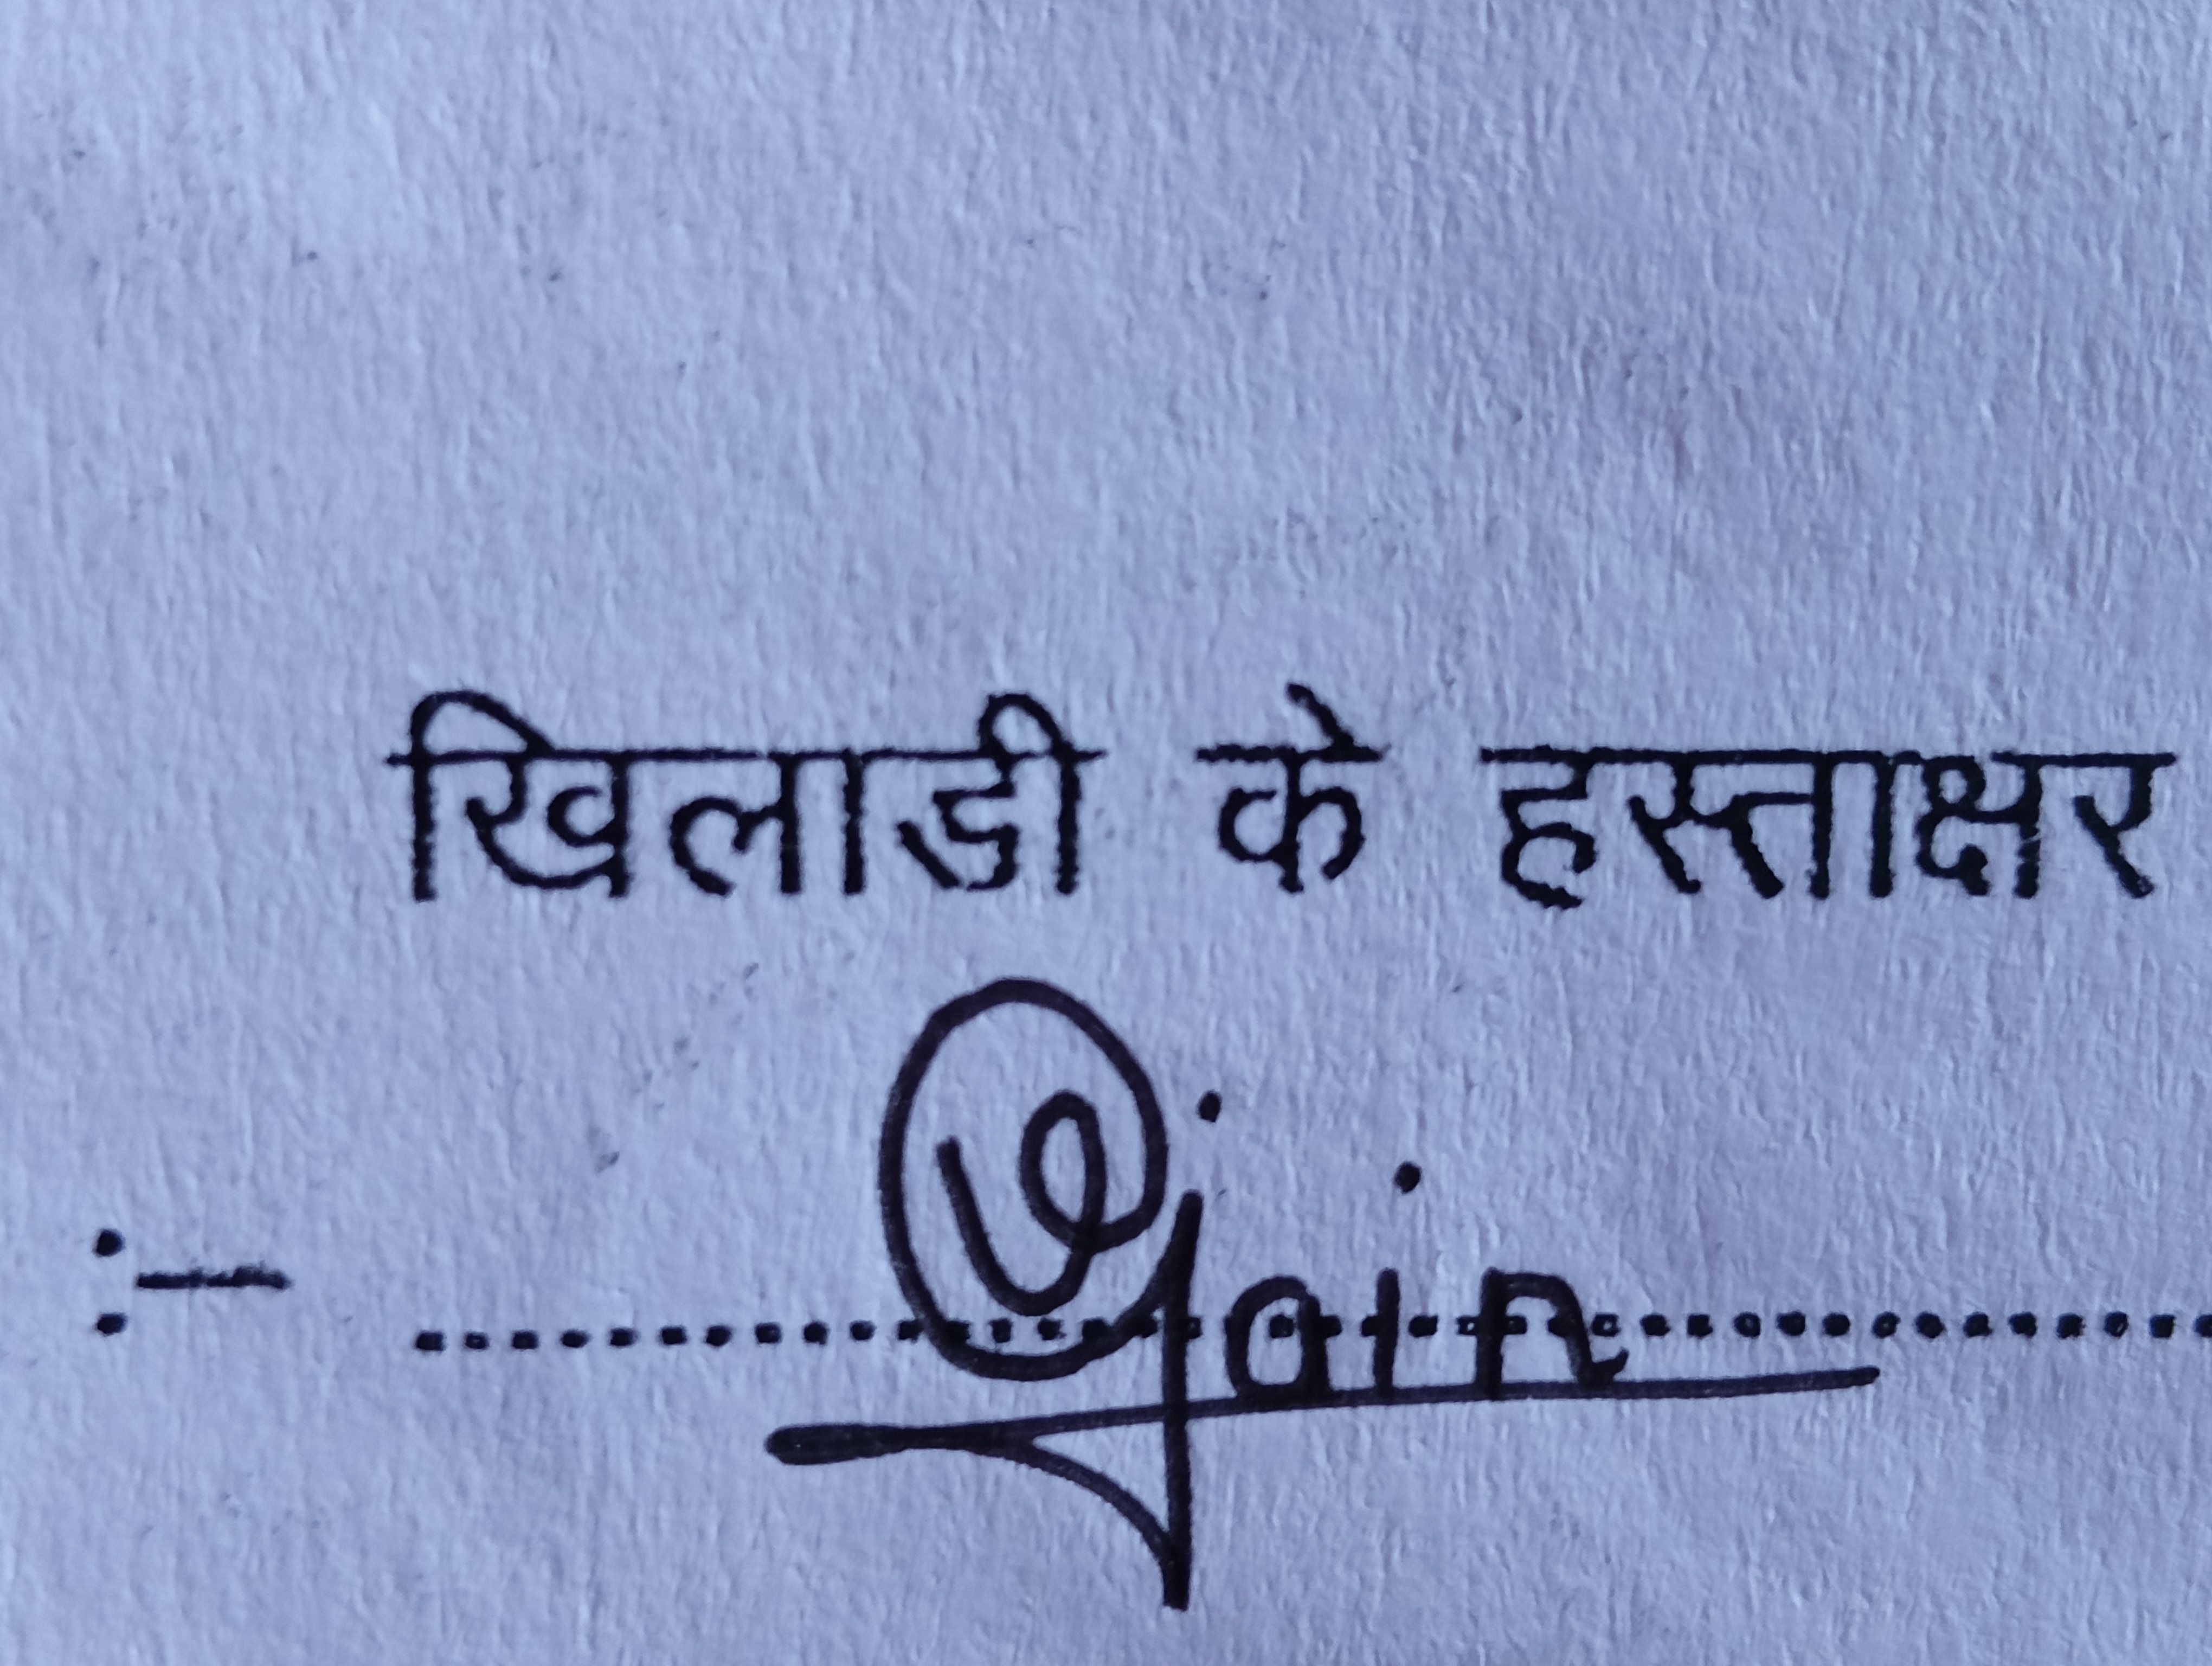 खिलाडी के हस्ताक्षर
:- ....................Jain....................